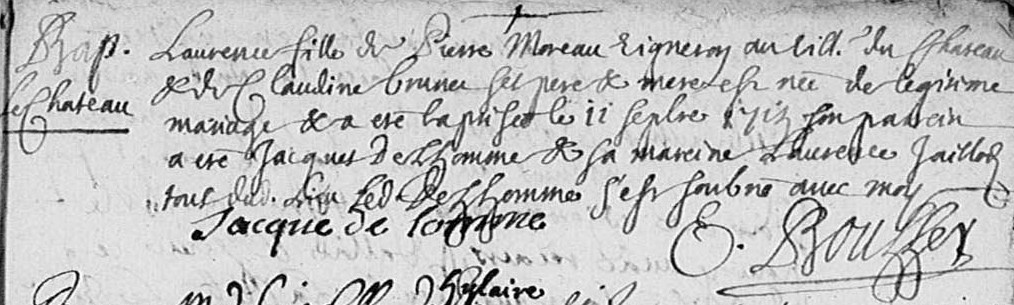 Bap. Laurence fille de Pierre Moreau Vigneron au vill. du Chateau
le Chateau & de Claudine brunet ses pere & mere est née de legitime
mariage & a eté baptisée le 11 septbre son parrein
a eté Jacques De Lhomme & sa mareine Laurence Jaillot
tous dud. Lieu Led. De Lhomme s'est soubné avec moy
Jacque de lomme E. Bouffey